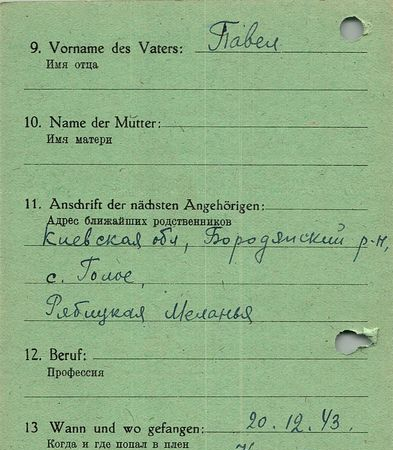 9. Vorname des Vaters: Павел
Имя отца
10. Name der Mutter:
Имя матери
11. Anschrift der nächsten Angehörigen:
Адрес ближайших родственников
Киевская обл, Бородянский р-н,
с. Голое,
Рябицкая Меланья
12. Beruf:
Профессия
13 Wann und wo gefangen: 20.12.43.
Когда и где попал в плен